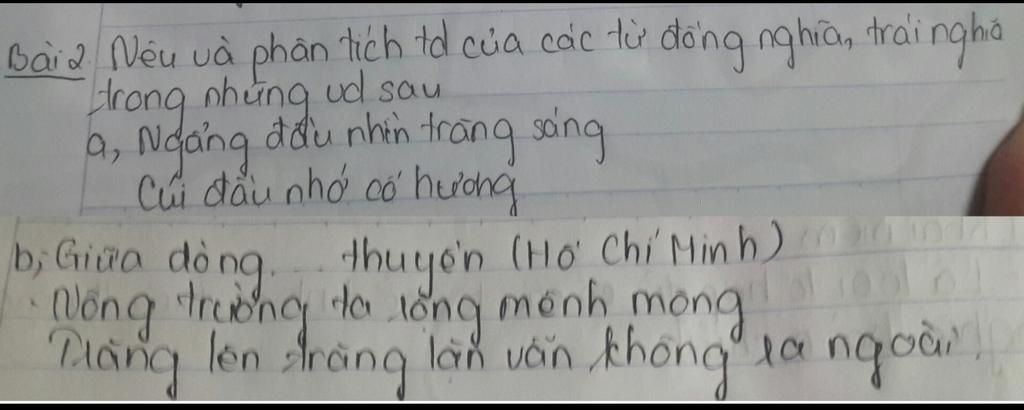 Bài 2. Nêu và phân tích td của các từ đồng nghĩa, trái nghĩa
trong những vd sau
a, Ngẩng đầu nhìn trăng sáng
Cúi đầu nhớ cố hương
b, Giữa dòng ... thuyền (Hồ Chí Minh)
Nông trường ta rộng mênh mông
Trăng lên trăng lặn vẫn không ra ngoài